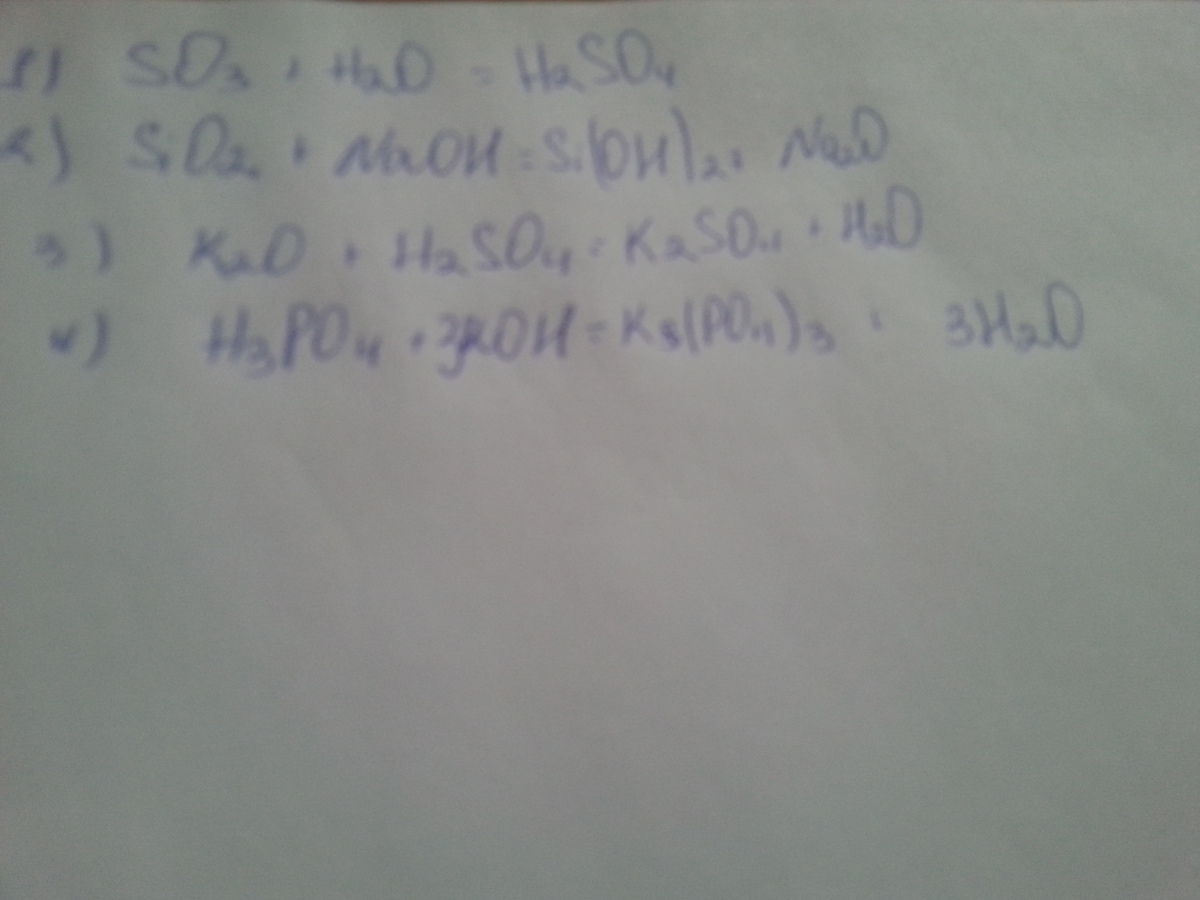 1) SO3 + H2O = H2SO4
2) SiO2 + NaOH = Si(OH)2 + Na2O
3) K2O + H2SO4 = K2SO4 + H2O
4) H3PO4 + 3KOH = K3(PO4)3 + 3H2O